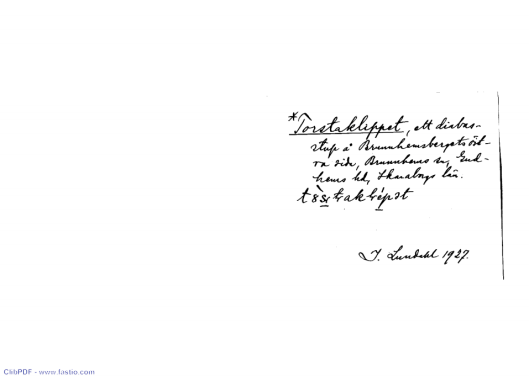 *Torstaklippet, ett diabas-
stup å Brunnhemsbergets öst-
ra sida, Brunnhems sn, Gud-
hems hd, Skaraborgs län.
I. Lundahl 1927.
ClibPDF - www.fastio.com